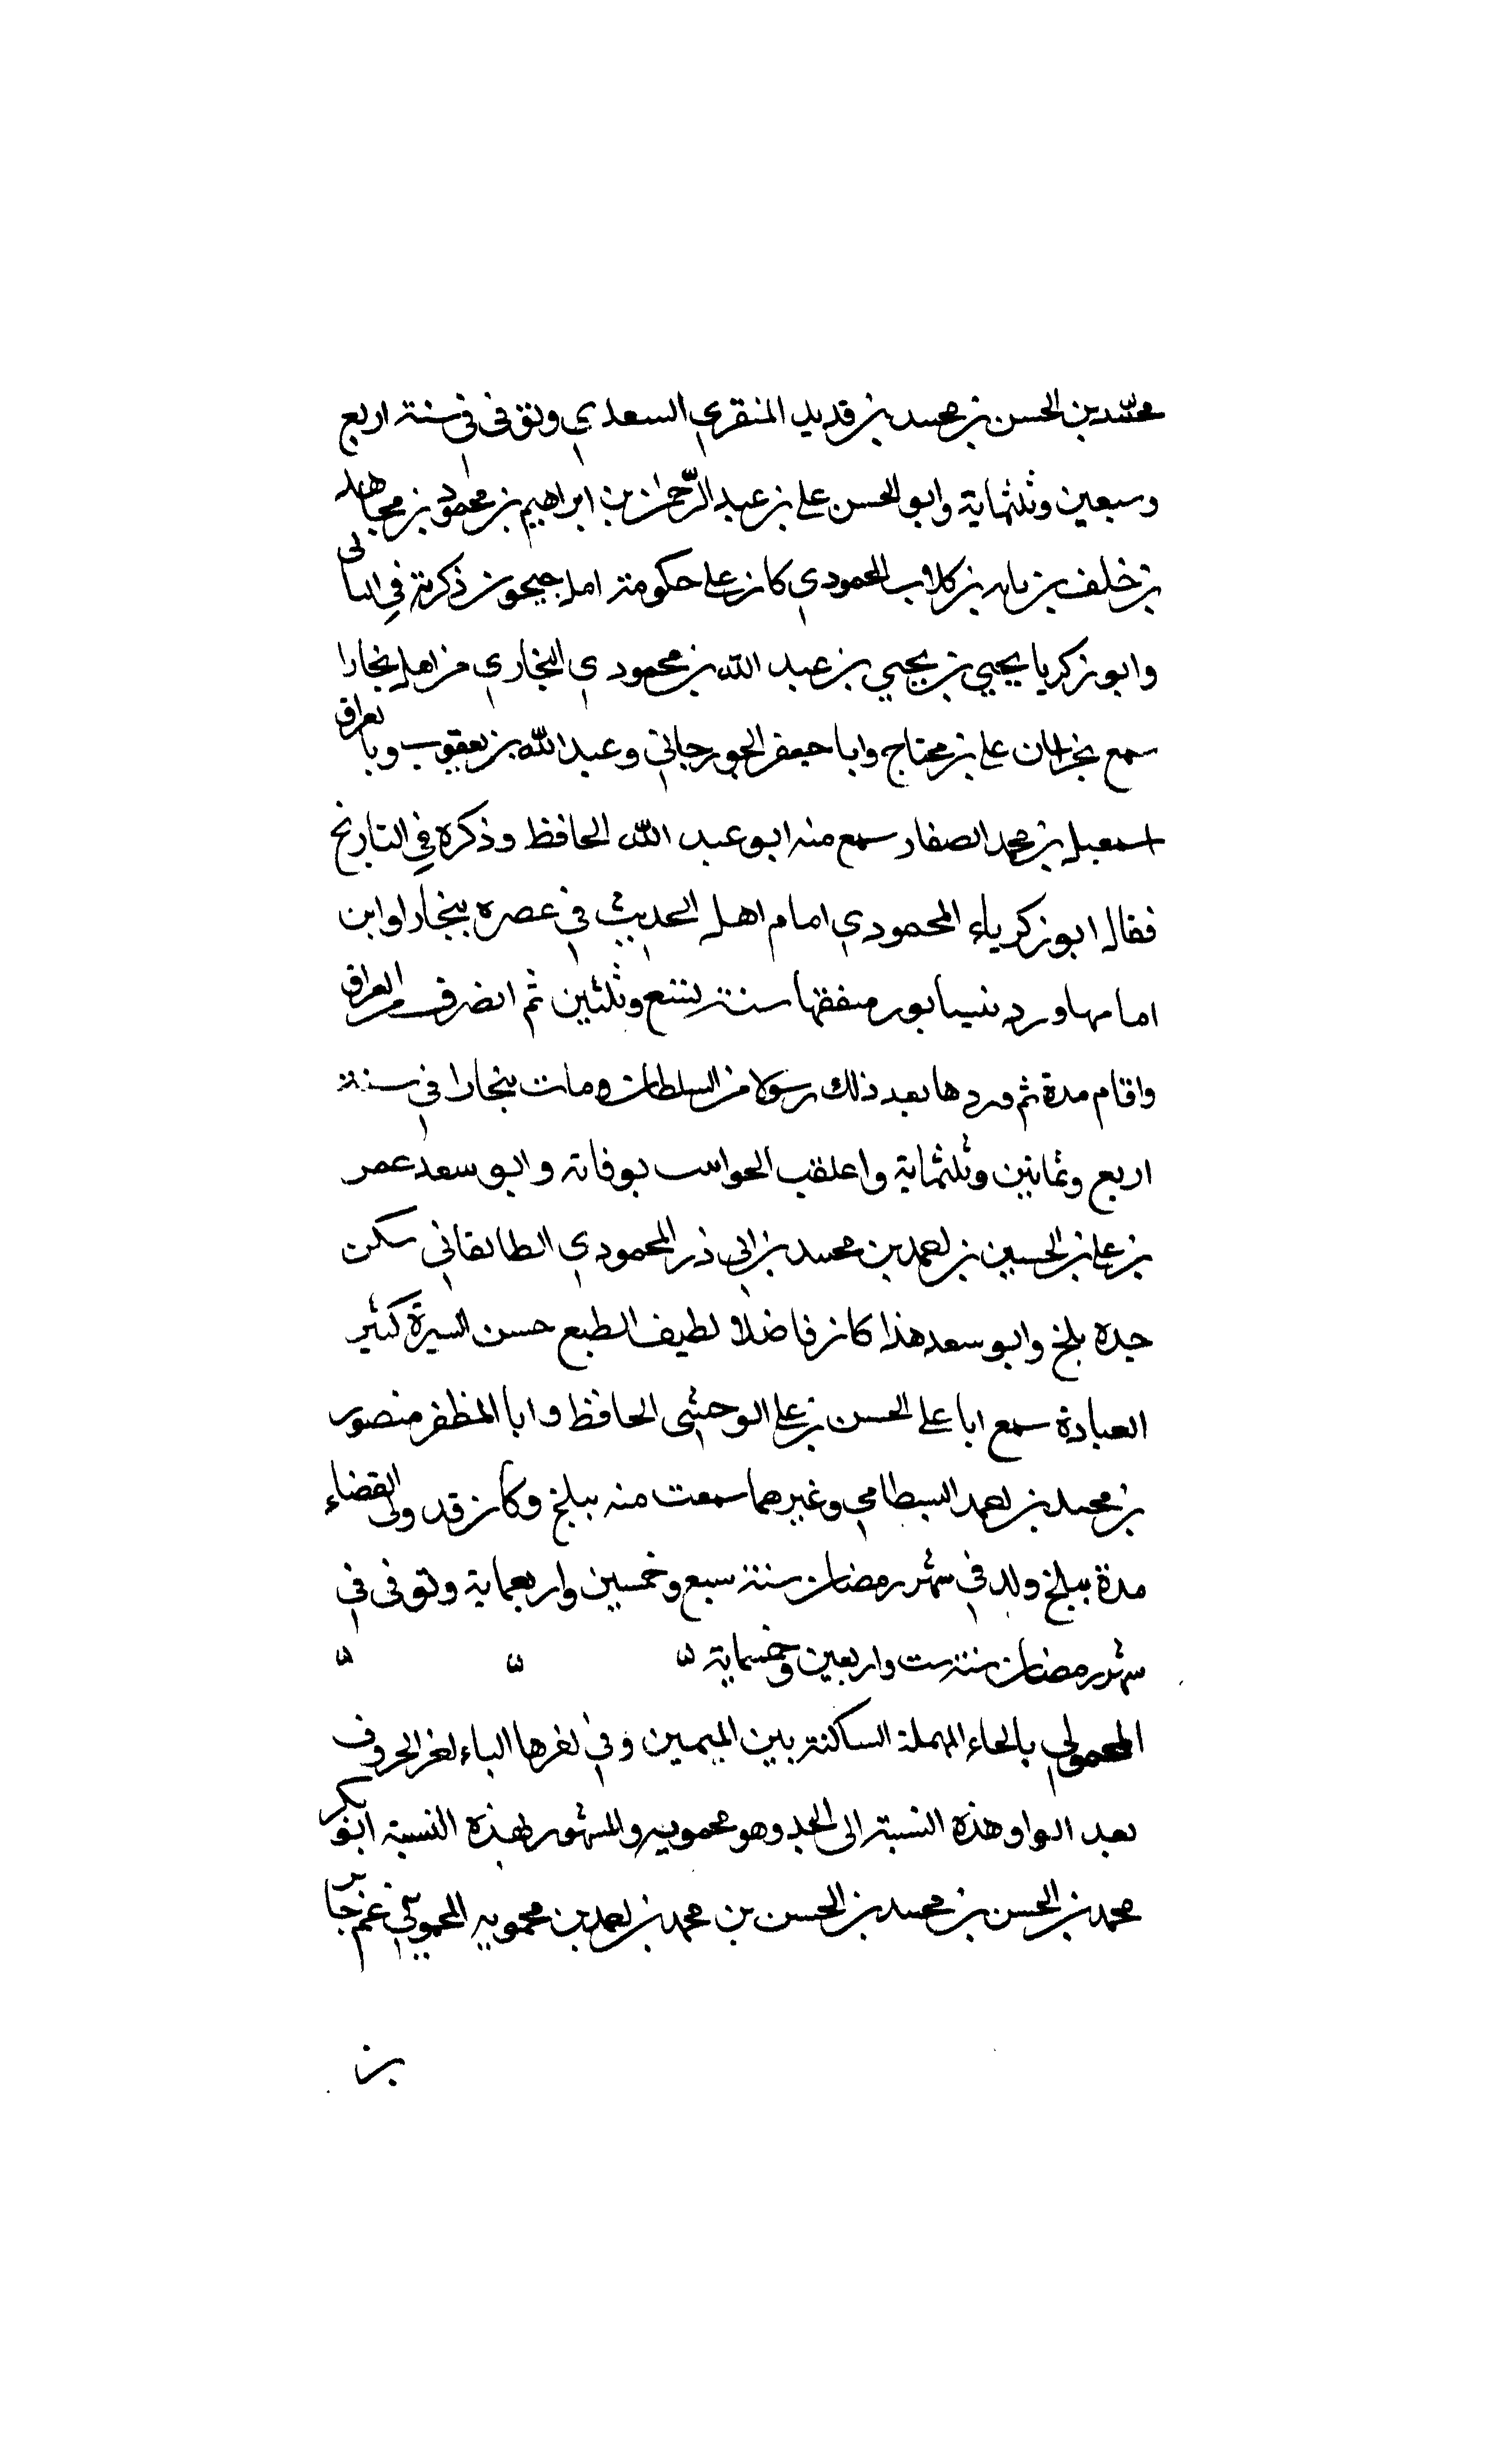 محمد بن الحسن بن محمد بن قديد المنقري السعدي وتوفى في سنة اربع
وسبعين وثلثماية وابو الحسن علي بن عبد الرحمن بن ابراهيم بن محمود بن مجاهد
بن خلف بن كلاب المحمودي كان على حكومة امل جيحون ذكرته في
وابو زكريا يحيي بن يحيي بن عبد الله بن محمودي البخاري من اهل بخارا
سمع علي بن محتاج وابا جعفر الجورجاني وعبد الله بن يعقوب وبالعراق
اسمعيل بن محمد الصفار سمع منه ابو عبد الله الحافظ وذكره في التاريخ
فقال ابو زكرياء المحمودي امام اهل الحديث في عصره ببخارا وابن
امامها ورد نيسابور سنة تسع وثلثين ثم انصرف من العراق
واقام مدة ثم وردها بعد ذلك رسولا من السلطان ومات ببخارا في سنة
اربع وثمانين وثلثماية واعلقب بوفاته وابو سعد عمر
بن علي بن الحسين بن احمد بن محمد بن ابي ذر المحمودي الطالقاني سكن
جده بلخ وابو سعد هذا كان فاضلا لطيف الطبع حسن السيرة كثير
العبادة سمع ابا علي الحسن بن علي الوحشي الحافظ وابا المظفر منصور
بن محمد بن احمد البسطامي وغيرهما سمعت منه ببلخ وكان قد ولى القضاء
مدة ببلخ ولد في شهر رمضان سنة سبع وخمسين واربعماية وتوفى في
شهر رمضان سنة ست واربعين وخمسماية
بالحاء المهملة الساكنة بين الميمين وفي اخرها الياء اخر الحروف
بعد الواو هذه النسبة الى الجد وهو محمويه والمشهور بهذه النسبة ابو بكر
محمد بن الحسن بن محمد بن الحسن بن محمد بن احمد بن محمويه
بن